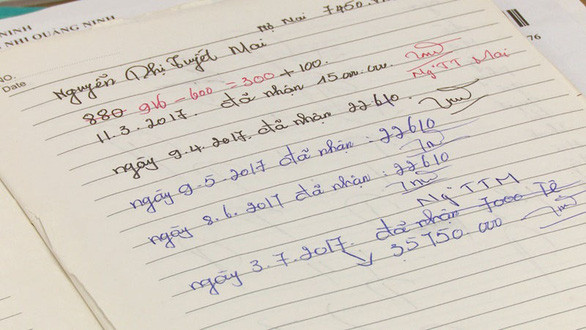 NINH
NHI QUẢNG NINH
NO.
Date
Mộ Mai 7450.
Nguyễn Thị Tuyết Mai
880 916 - 600 = 300 + 100.
11.3.2017. đã nhận 15.000.000. Ng TT Mai
ngày 9.4.2017. đã nhận 22610.
ngày 9.5.2017 đã nhận : 22610
ngày 8.6.2017 đã nhận : 22610
Ng TTM
ngày 3.7.2017. đã nhận 7000 Tệ
35750.000
76